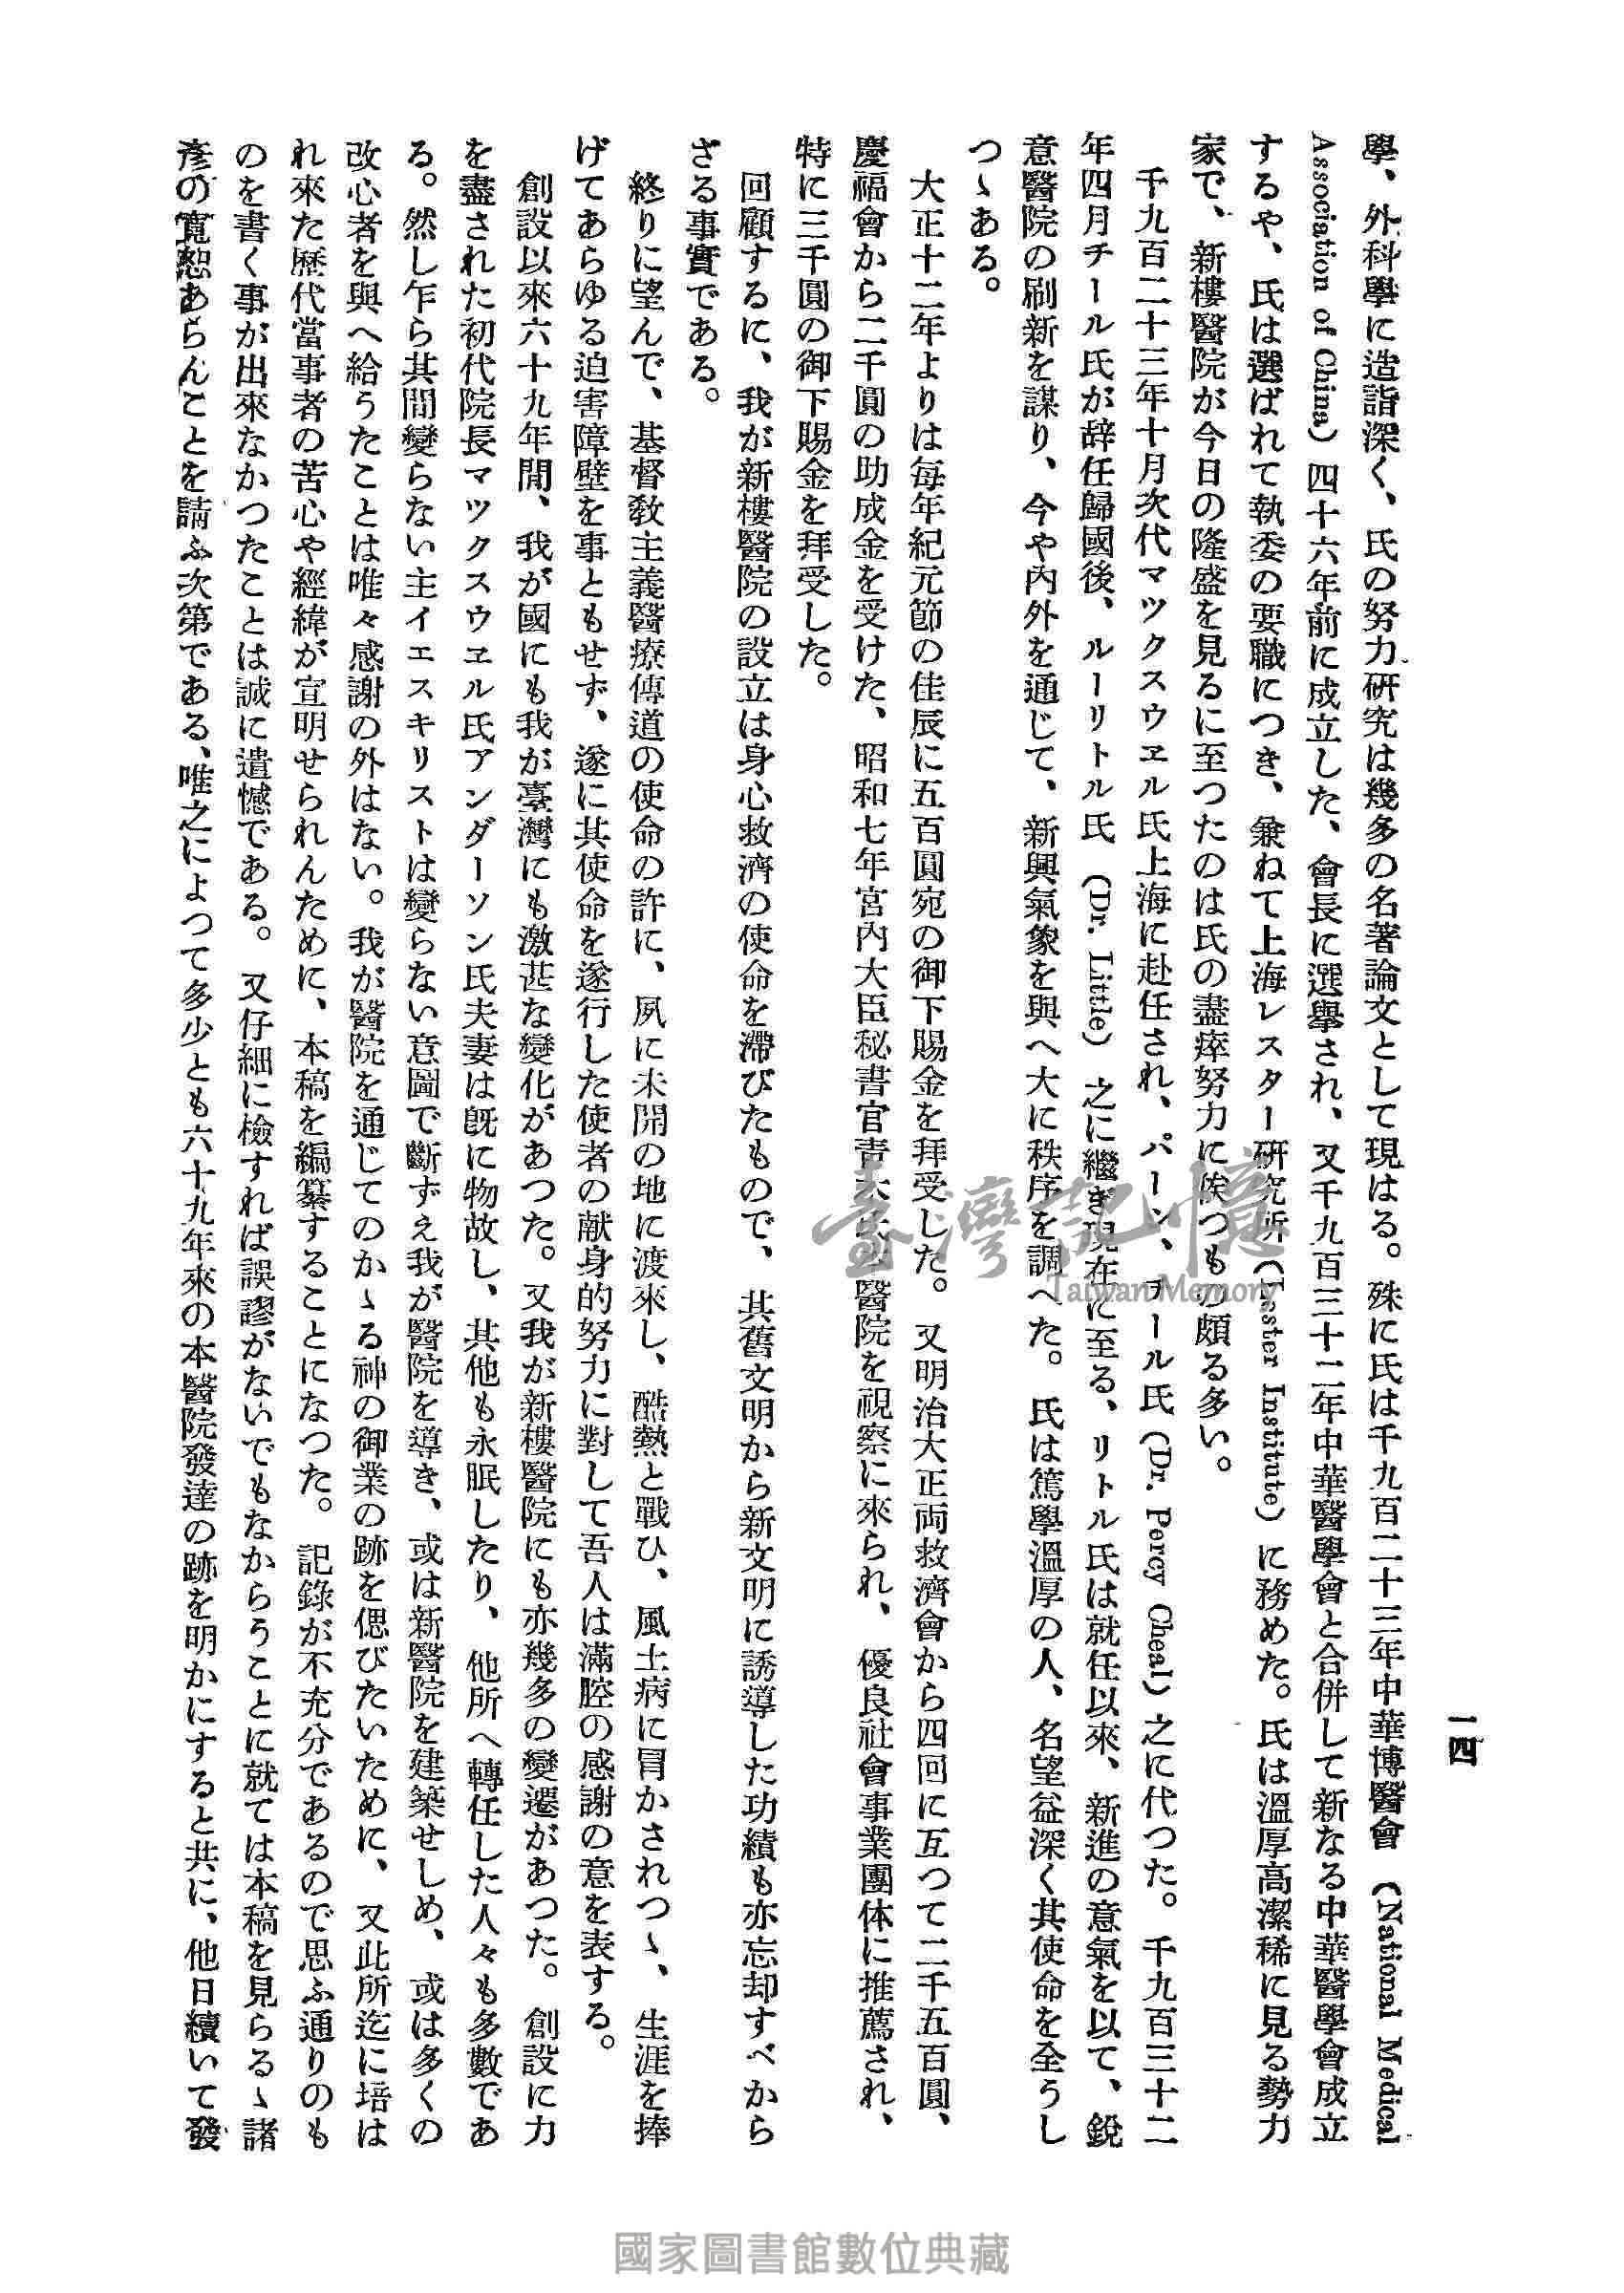 一四
學、外科學に造詣深く、氏の努力研究は幾多の名著論文として現はる。殊に氏は千九百二十三年中華博醫會 (National Medical
Association of China) 四十六年前に成立した、會長に選擧され、又千九百三十二年中華醫學會と合併して新なる中華醫學會成立
するや、氏は選ばれて執委の要職につき、兼ねて上海レスター研究所 (Lester Institute) に務めた。氏は溫厚高潔稀に見る勢力
家で、新樓醫院が今日の隆盛を見るに至つたのは氏の盡瘁努力に俟つもの頗る多い。
千九百二十三年十月次代マツクスウヱル氏上海に赴任され、パーシ、チール氏 (Dr. Percy Cheal) 之に代つた。千九百三十二
年四月チール氏が辞任歸國後、ルーリトル氏 (Dr. Little) 之に繼ぎ現在に至る、リトル氏は就任以來、新進の意氣を以て、銳
意醫院の刷新を謀り、今や內外を通じて、新興氣象を與へ大に秩序を調へた。氏は篤學溫厚の人、名望益深く其使命を全うし
つゝある。
大正十二年よりは每年紀元節の佳辰に五百圓宛の御下賜金を拜受した。又明治大正両救濟會から四回に亙つて二千五百圓、
慶福會から二千圓の助成金を受けた、昭和七年宮內大臣秘書官靑木氏本醫院を視察に來られ、優良社會事業團体に推薦され、
特に三千圓の御下賜金を拜受した。
回顧するに、我が新樓醫院の設立は身心救濟の使命を滯びたもので、其舊文明から新文明に誘導した功績も亦忘却すべから
ざる事實である。
終りに望んで、基督敎主義醫療傳道の使命の許に、夙に未開の地に渡來し、酷熱と戰ひ、風土病に冒かされつゝ、生涯を捧
げてあらゆる迫害障壁を事ともせず、遂に其使命を遂行した使者の献身的努力に對して吾人は滿腔の感謝の意を表する。
創設以來六十九年間、我が國にも我が臺灣にも激甚な變化があつた。又我が新樓醫院にも亦幾多の變遷があつた。創設に力
を盡された初代院長マツクスウヱル氏アンダーソン氏夫妻は旣に物故し、其他も永眠したり、他所へ轉任した人々も多數であ
る。然し乍ら其間變らない主イエスキリストは變らない意圖で斷ずえ我が醫院を導き、或は新醫院を建築せしめ、或は多くの
改心者を與へ給うたことは唯々感謝の外はない。我が醫院を通じてのかゝる神の御業の跡を偲びたいために、又此所迄に培は
れ來た歷代當事者の苦心や經緯が宣明せられんために、本稿を編纂することになつた。記錄が不充分であるので思ふ通りのも
のを書く事が出來なかつたことは誠に遺憾である。又仔細に檢すれば誤謬がないでもなからうことに就ては本稿を見らるゝ諸
彥の寬恕あらんことを請ふ次第である、唯之によつて多少とも六十九年來の本醫院發達の跡を明かにすると共に、他日續いて發
臺灣記憶
Taiwan Memory
國家圖書館數位典藏